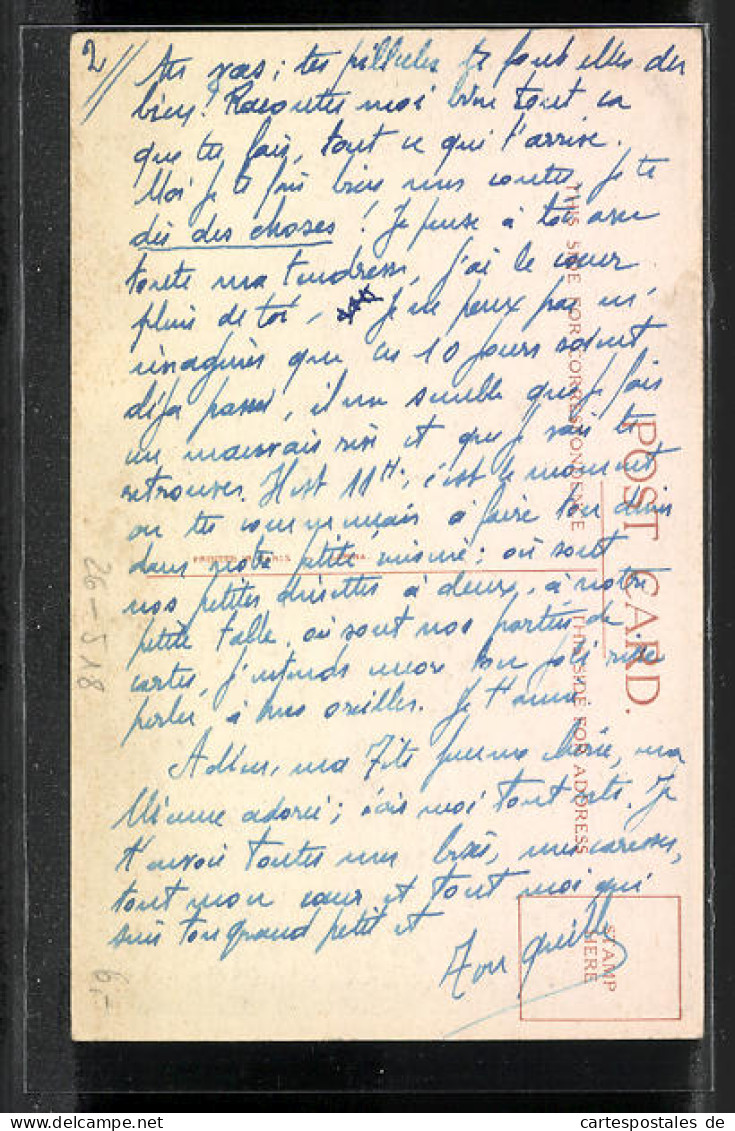 2//
tes pillules te font elles du
bien! Racontes moi bien tout ca
que tu fais, tout ce qui t'arrive.
Moi je te fais bien mes contes, je te
dis des choses! Je pense à toi avec
toute ma tendresse, j'ai le cœur
plein de toi, je ne peux pas m'
imaginer que ces 10 jours soient
déja passé, il me semble que je fais
un mauvais rêve et que je vais te
retrouver. Il est 11H, c'est le moment
ou tu commençais à faire ton
dans notre petite cuisine: où sont
nos petites dinettes à deux, à notre
petite table, où sont nos parties de
cartes, j'entends encore ton joli rire
perler à mes oreilles. Je t'aime.
Adieu, ma Tite femme chérie, ma
Mienne adorée; écris moi tout vite. Je
t'envoie toutes mes bises, mes caresses,
tout mon cœur et tout moi qui
suis ton grand petit et
Ton
THIS SIDE FOR CORRESPONDENCE
THIS SIDE FOR ADDRESS
POST CARD.
STAMP
HERE
26-518
6,-
cartespostales de